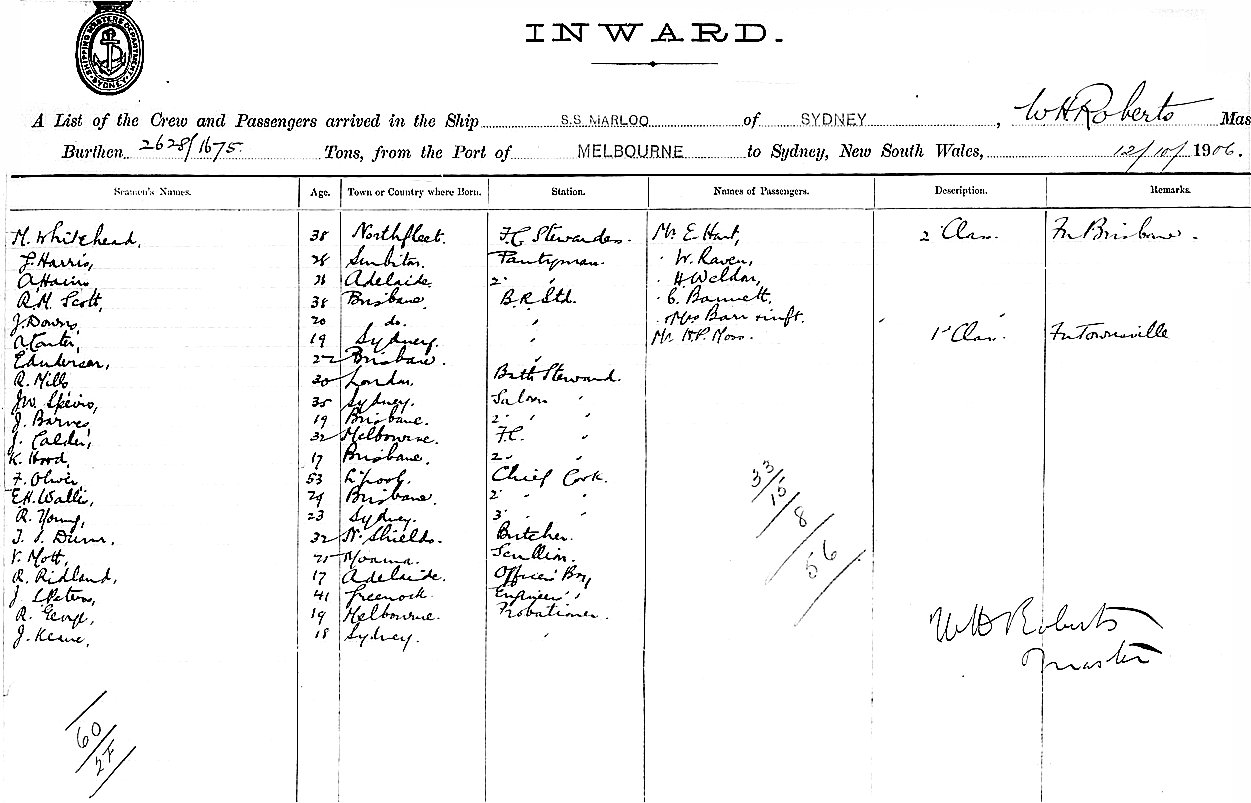 SHIPPING MASTERS DEPARTMENT SYDNEY
INWARD.
A List of the Crew and Passengers arrived in the Ship S.S. MARLOO of SYDNEY, WH Roberts Mas
Burthen 2628/1675 Tons, from the Port of MELBOURNE to Sydney, New South Wales, 12/10/1906.
Seamen's Names. Age. Town or Country where Born. Station. Names of Passengers. Description. Remarks.
M. Whitehead, 38 Northfleet. F.C Stewardes. Mr E. Hart, 2 Clas. Fr Brisbane.
J. Harris, 28 Pantryman. " W. Raven,
A Hains 28 Adelaide. 2 " " H Weldon,
R.M. Scott, 38 Brisbane. B.R Std. " C. Barnett.
J. Downs, 20 do. " " Mrs
A Carter, 19 Sydney. " Mr H.P. Moss. 1 Clas. Fr Townsville
E Anderson, 22 Brisbane. "
R. Mills 30 London. Bath Steward.
J.W. Speirs, 35 Sydney. Saloon "
J. Barnes, 19 Brisbane. 2 " "
J. Calder, 32 Melbourne. F.C. "
K. Hood, 17 Brisbane. 2 "
F. Oliver, 53 L'pool. Chief Cook.
E.H. Wallis, 29 Brisbane. 2 " "
R. Young, 23 Sydney. 3 " "
T. S. Dunn, 32 N. Shields. Butcher.
V. Mott, 21 Moama. Scullion.
R. Ridland, 17 Adelaide. Officers Boy,
J. 41 Greenock. Engineers "
R. George, 19 Melbourne. Probationer.
J. Keane, 18 Sydney. "
33/15/8/56
WH Roberts
Master
60/27